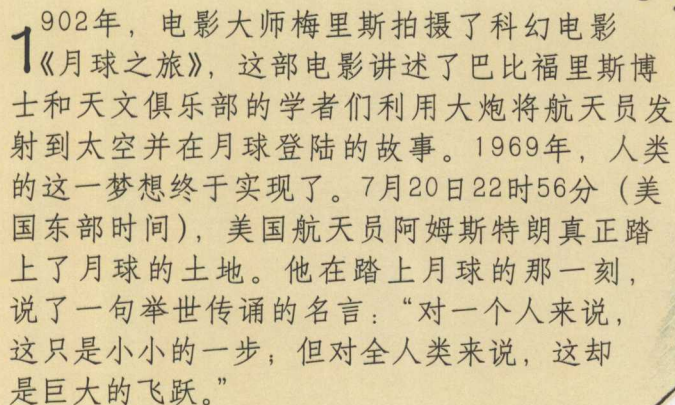 1902年，电影大师梅里斯拍摄了科幻电影
《月球之旅》，这部电影讲述了巴比福里斯博
士和天文俱乐部的学者们利用大炮将航天员发
射到太空并在月球登陆的故事。1969年，人类
的这一梦想终于实现了。7月20日22时56分（美
国东部时间），美国航天员阿姆斯特朗真正踏
上了月球的土地。他在踏上月球的那一刻，
说了一句举世传诵的名言：“对一个人来说，
这只是小小的一步；但对全人类来说，这却
是巨大的飞跃。”